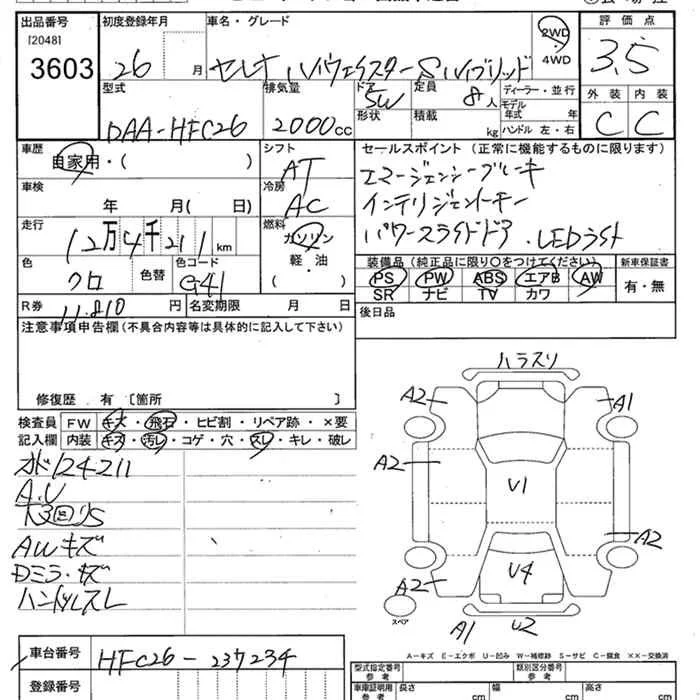 出品番号 初度登録年月 車名・グレード 評価点
[2048]
3603 26 月 セレナ ハイウェイスターS ハイブリッド 2WD ・ 4WD 3.5
型式 排気量 ドア 5W 定員 8人 ディーラー・並行 外装 内装
形状 積載 kg モデル年式 年 ハンドル 左・右
DAA-HFC26 2000cc C C
車歴 自家用・( ) シフト AT セールスポイント (正常に機能するものに限ります)
車検 年 月( 日) 冷房 AC エマージェンシーブレーキ
インテリジェントキー
走行 12万4千211km 燃料 ガソリン パワースライドドア .LEDライト
軽・油
( )
色 クロ 色替 色コード G41 装備品 (純正品に限り○をつけてください) 新車保証書
PS PW ABS エアB AW 有・無
SR ナビ TV カワ
R券 11.810円 名変期限 月 日 後日品
注意事項申告欄 (不具合内容等は具体的に記入して下さい)
修復歴 有 〔箇所 〕
検査員 FW キズ・飛石・ヒビ割・リペア跡・×要
記入欄 内装 キズ・汚レ・コゲ・穴・スレ・キレ・破レ
124211
A.U
AWキズ
Dミラ・キズ
ハンドルスレ
ハラスリ
A2 A1
A2 U1
A2
A2 U4
スペア A1 U2
A-キズ E-エクボ U-凹み W-補修跡 S-サビ C-腐食 ××-交換済
車台番号 HFC26-237234
型式指定番号 参考 類別区分番号 参考
登録番号 車庫証明用 参考 長さ cm 幅 cm 高さ cm